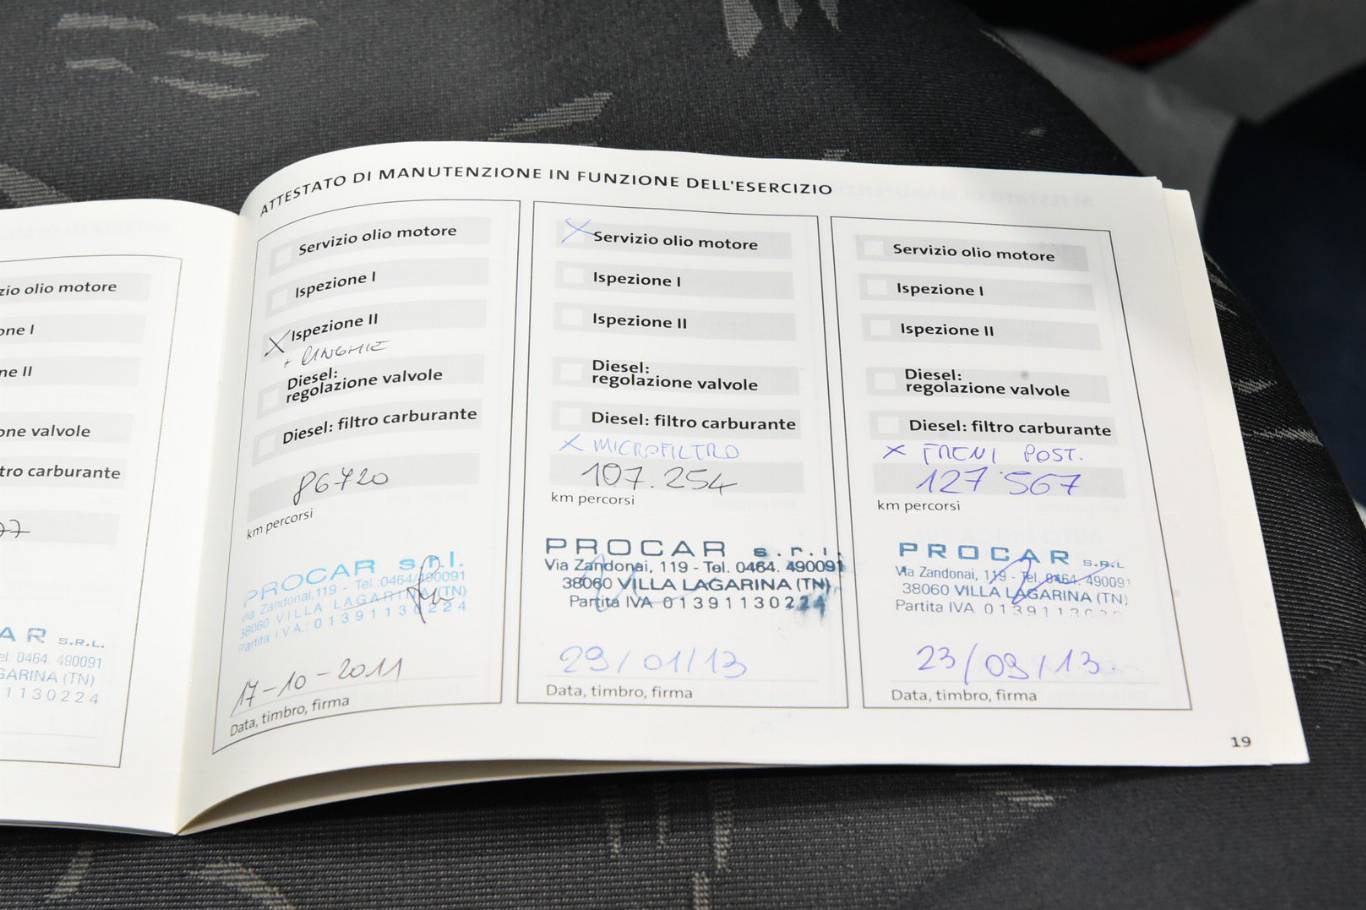 zio olio motore
one I
ne II
one valvole
tro carburante
A R S.R.L.
el. 0464. 490091
GARINA (TN)
1 1 3 0 2 2 4
ATTESTATO DI MANUTENZIONE IN FUNZIONE DELL'ESERCIZIO
Servizio olio motore
Ispezione I
X Ispezione II
+ CINGHIE
Diesel:
regolazione valvole
Diesel: filtro carburante
86720
km percorsi
PROCAR s.r.l.
Via Zandonai, 119 - Tel. 0464/490091
38060 VILLA LAGARINA (TN)
Partita IVA: 0 1 3 9 1 1 3 0 2 2 4
17-10-2011
Data, timbro, firma
X Servizio olio motore
Ispezione I
Ispezione II
Diesel:
regolazione valvole
Diesel: filtro carburante
X MICROFILTRO
107.254
km percorsi
PROCAR s.r.l.
Via Zandonai, 119 - Tel. 0464. 490091
38060 VILLA LAGARINA (TN)
Partita IVA 0 1 3 9 1 1 3 0 2 2 4
29/01/13
Data, timbro, firma
Servizio olio motore
Ispezione I
Ispezione II
Diesel:
regolazione valvole
Diesel: filtro carburante
X FRENI POST.
127 567
km percorsi
PROCAR S.R.L
Via Zandonai, 119 - Tel. 0464. 49009
38060 VILLA LAGARINA (TN)
Partita IVA 0 1 3 9 1 1 3 0
23/09/13.
Data, timbro, firma
19